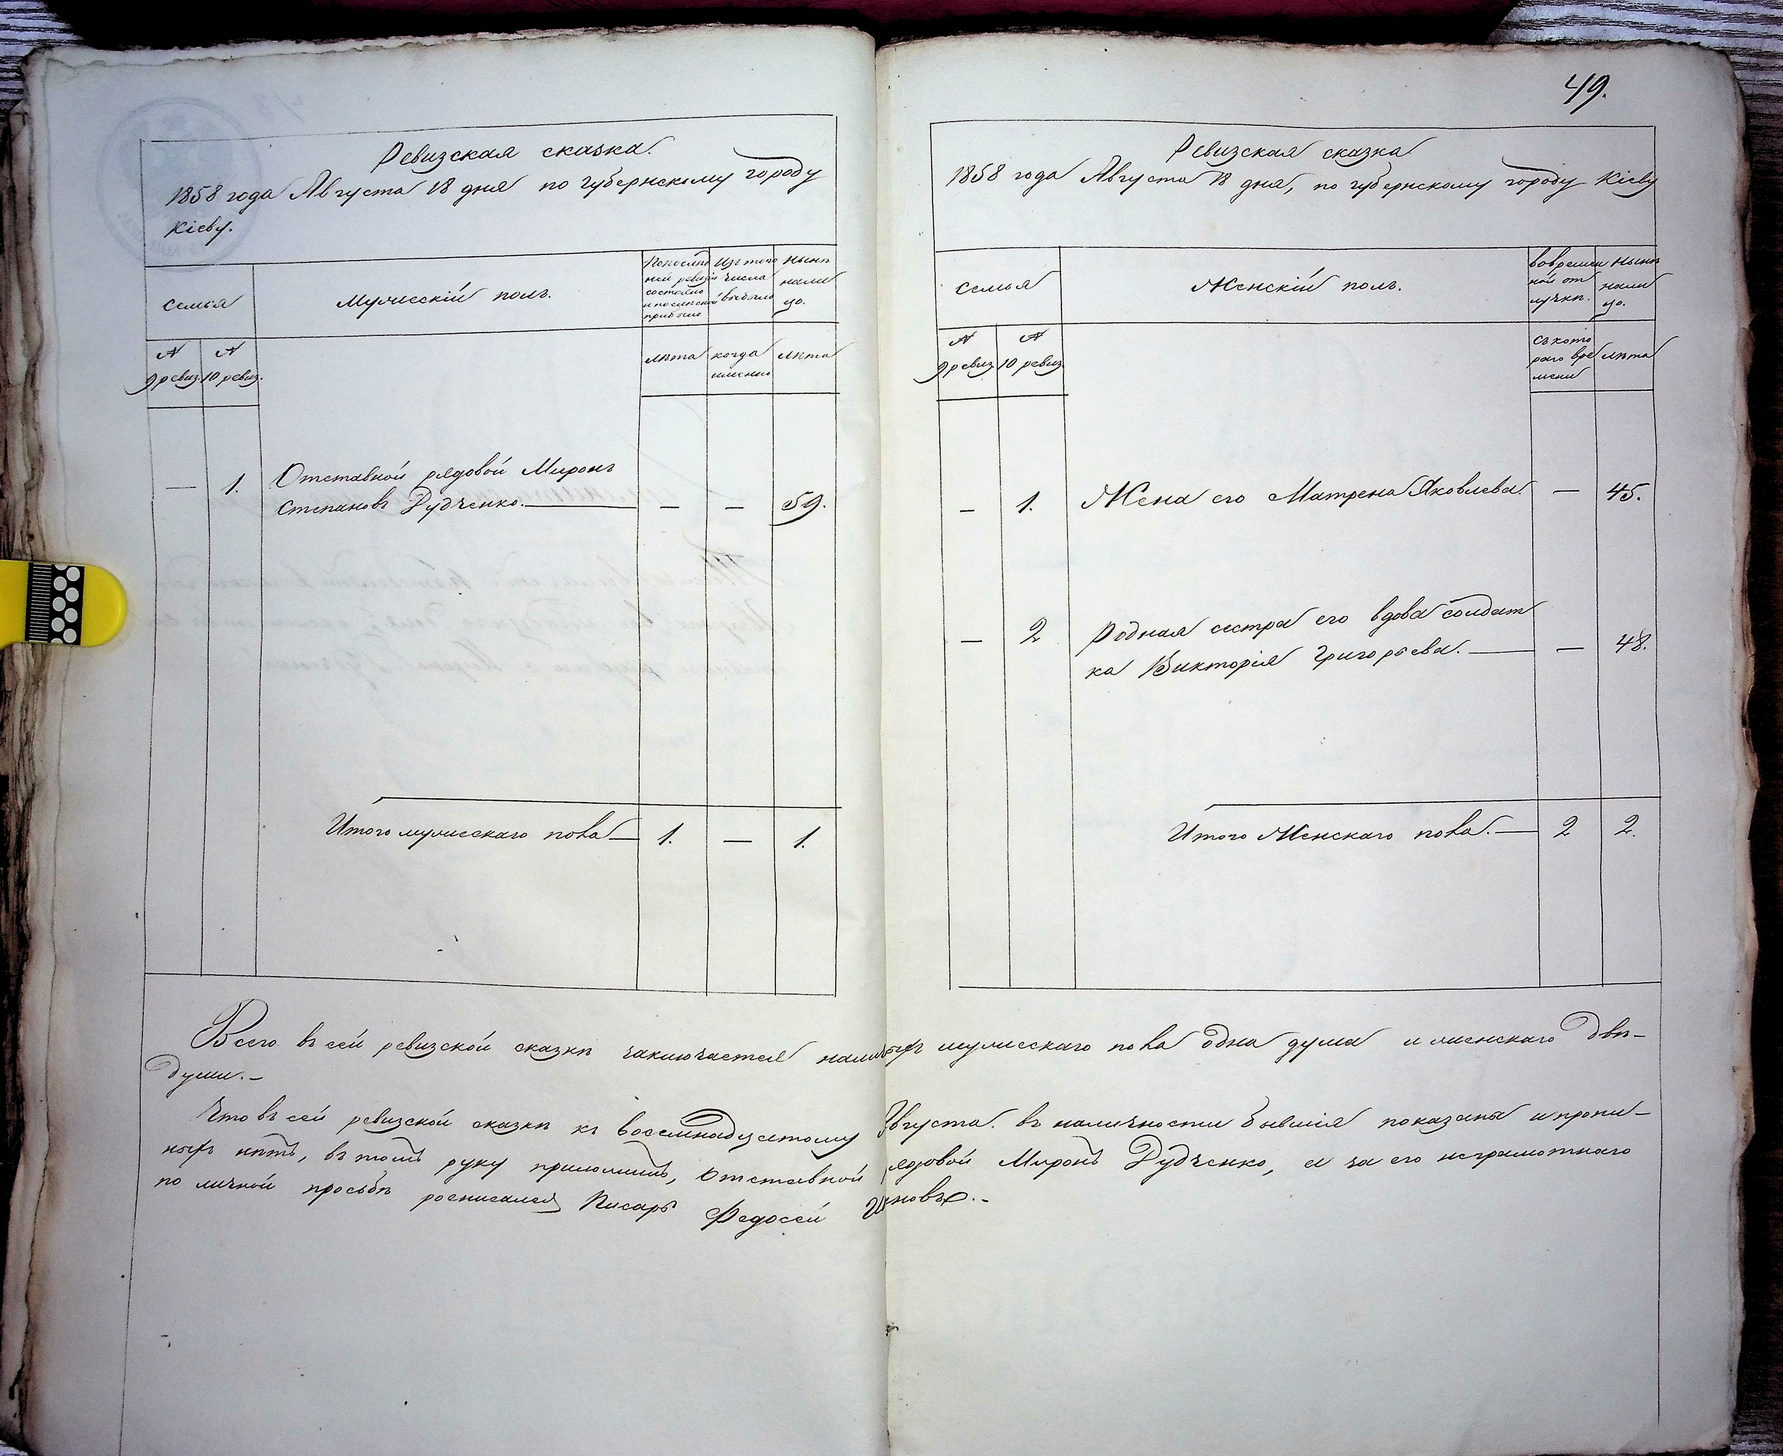 Ревизская сказка.
1858 года Августа 18 дня по губернскому городу
Кіеву.
семья
Мужескій полъ.
По послѣд
ней ревизіи
состояло
и послѣ того
прибыло
Изъ того
числа
выбыло
Нынѣ
нали
цо.
№
9 ревиз.
№
10 ревиз.
лѣта
когда
именно
лѣта
— 1. Отставной рядовой Миронъ
Степановъ Дудченко. — — — 59.
Итого мужескаго пола — 1. — 1.
49.
Ревизская сказка
1858 года Августа 18 дня, по губернскому городу Кіеву
семья
Женскій полъ.
Во времен
ной от
лучкѣ.
Нынѣ
нали
цо.
№
9 ревиз.
№
10 ревиз.
съ кото
раго вре
мени
лѣта
— 1. Жена его Матрена Яковлева. — 45.
— 2 Родная сестра его вдова солдат
ка Викторія Григорьева. — — 48.
Итого Женскаго пола. — 2 2.
Всего въ сей ревизской сказкѣ заключается мужескаго пола одна душа и женскаго двѣ-
души.-
Что въ сей ревизской сказкѣ къ восемнадцатому Августа въ наличности бывшія показаны и пропи-
ныхъ нѣтъ, въ томъ руку приложилъ, Отставной рядовой Миронъ Дудченко, а за его неграмотнаго
по личной просьбѣ росписался Писарь Федосей